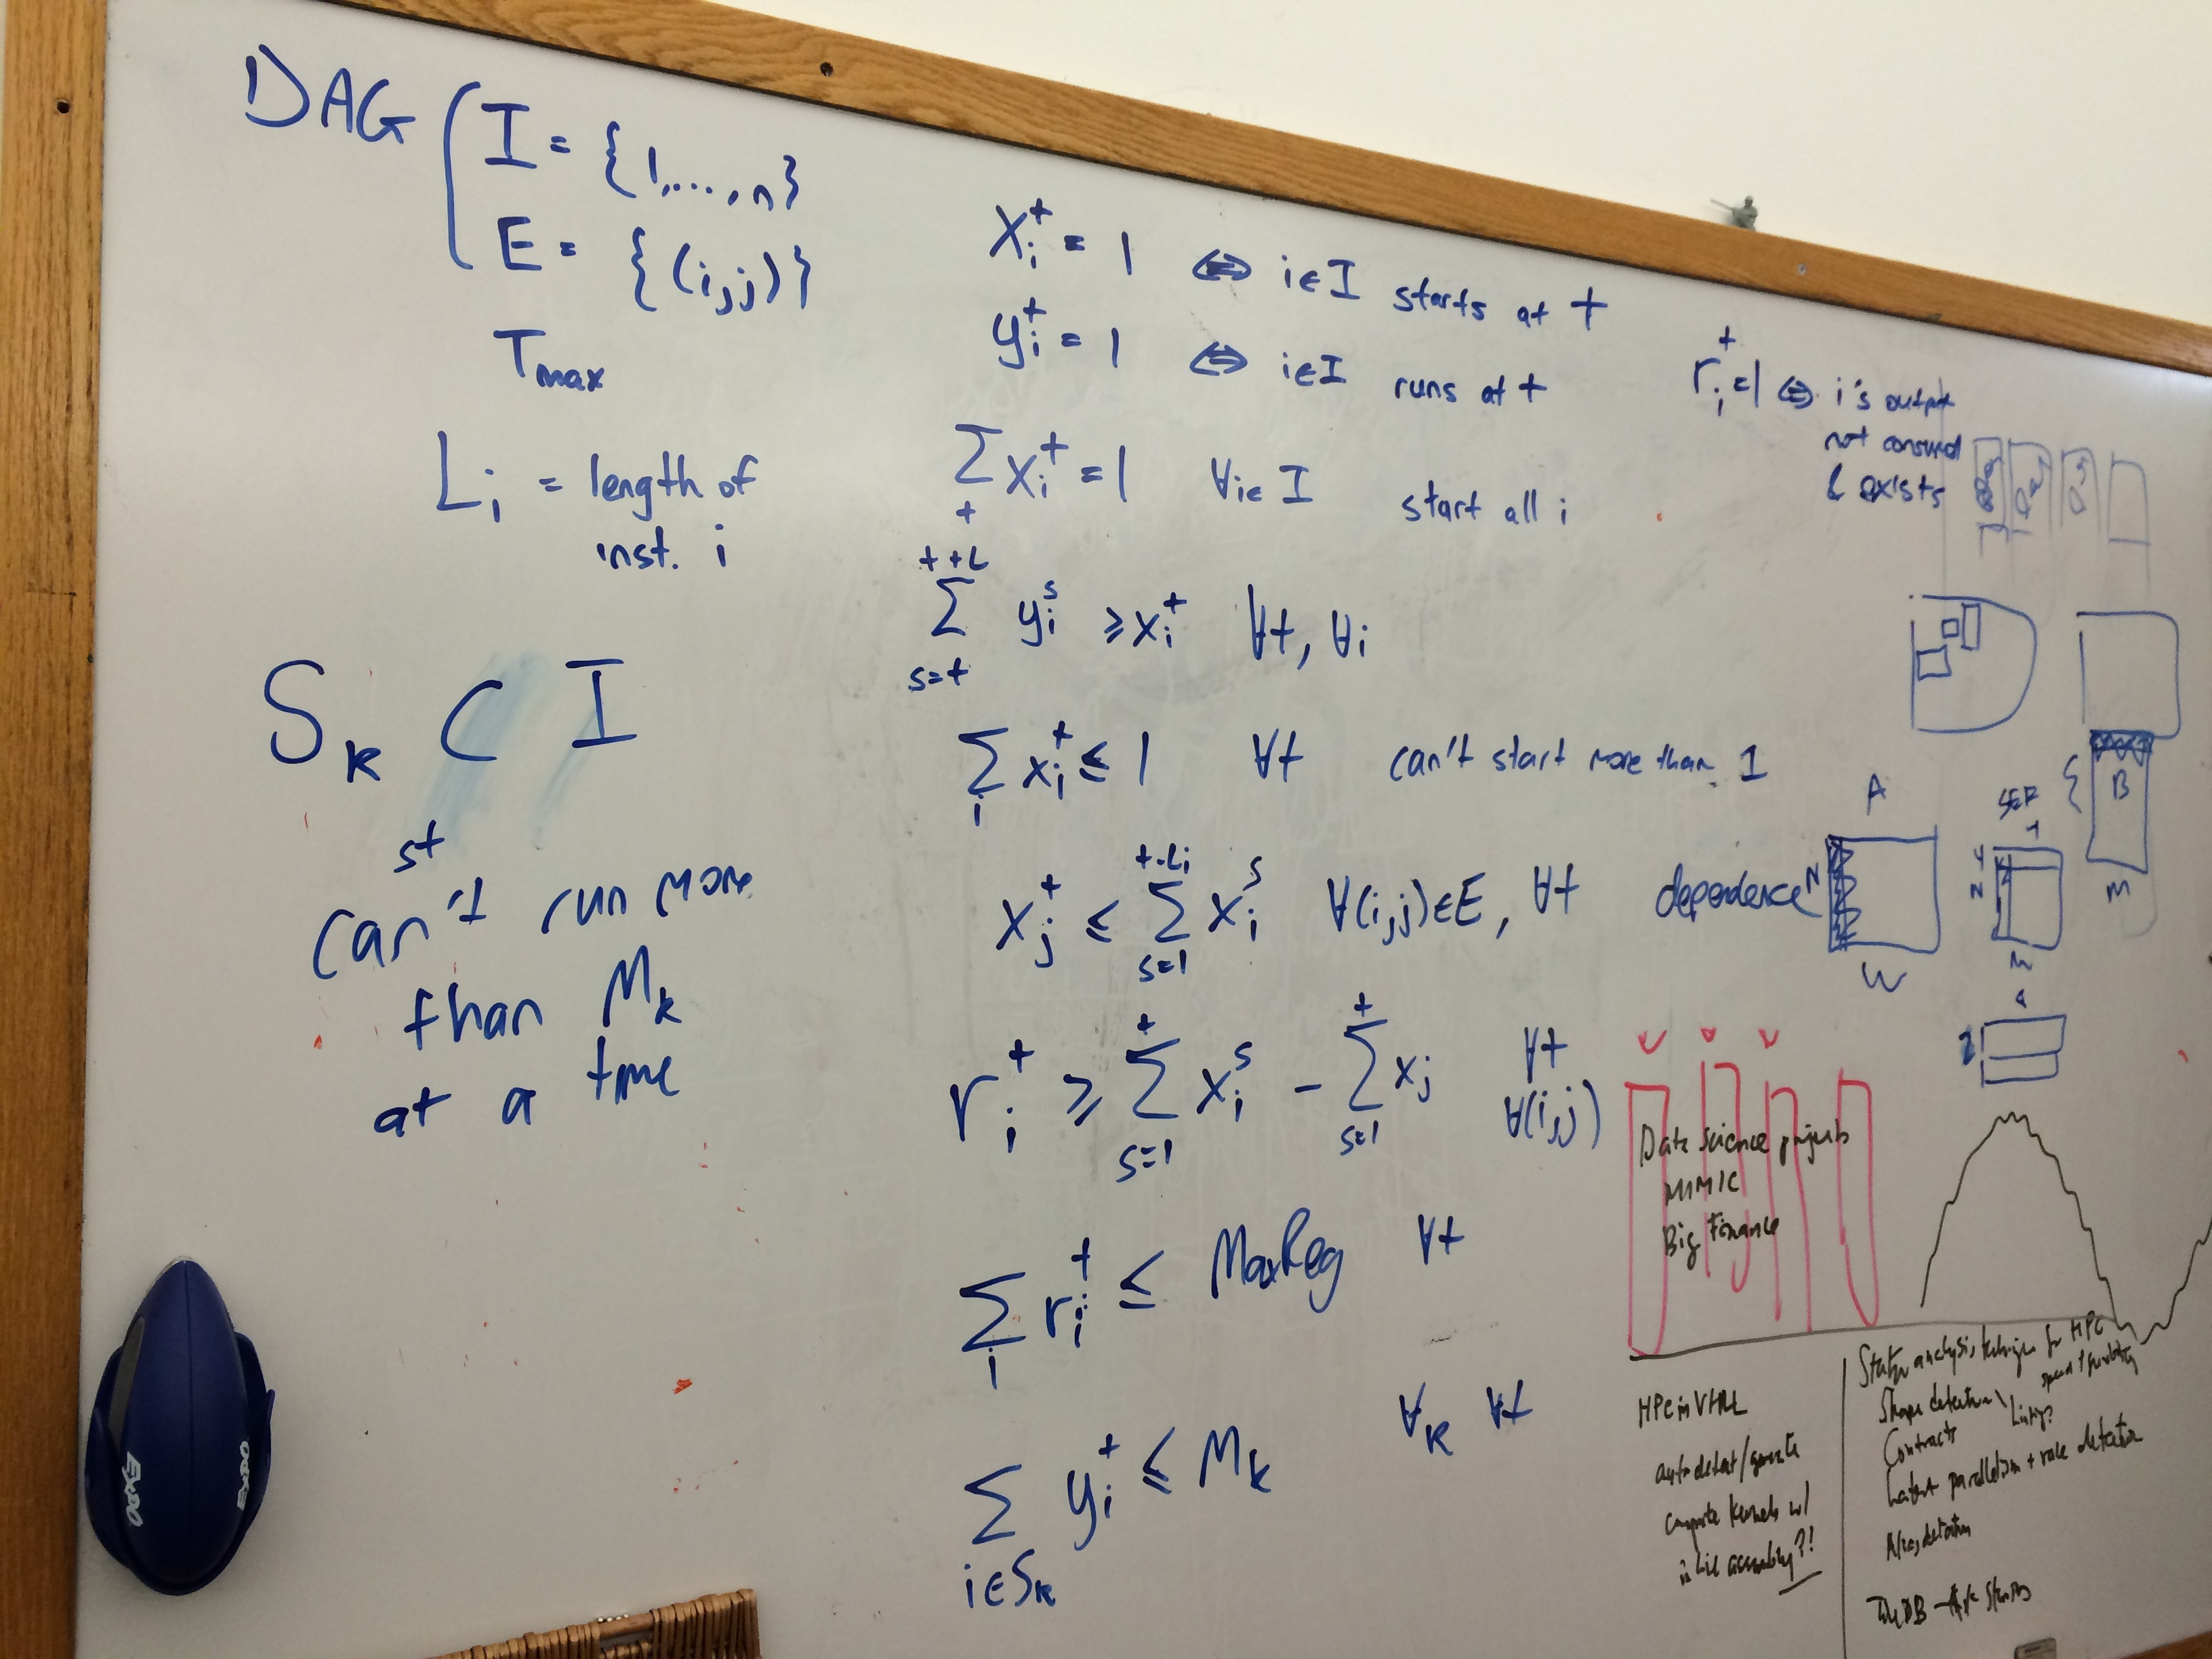 DAG
I = {1,...,n}
E = {(i,j)}
Tmax
Li = length of
inst. i
Sk ⊂ I
st
can't run more
than Mk
at a time
xi^t = 1 ⇔ i∈I starts at t
yi^t = 1 ⇔ i∈I runs at t
ri^t = 1 ⇔ i's output
not consumed
& exists
∑_t xi^t = 1 ∀i∈I start all i
∑_{s=t}^{t+L} yi^s ≥ xi^t ∀t, ∀i
∑_i xi^t ≤ 1 ∀t can't start more than 1
xj^t ≤ ∑_{s=1}^{t-Li} xi^s ∀(i,j)∈E, ∀t dependence
ri^t ≥ ∑_{s=1}^{t} xi^s - ∑_{s=1}^{t} xj ∀t
∀(i,j)
∑_i ri^t ≤ MaxReg ∀t
∑_{i∈Sk} yi^t ≤ Mk ∀k ∀t
A
N
W
B
M
Data science projects
MIMIC
Big Finance
HPC in VHLL
auto detect/generate
compute kernels w/
assembly?!
analysis techniques for HPC
Shape detection
Contracts
Latent parallelism + detection
EXPO
EXPO